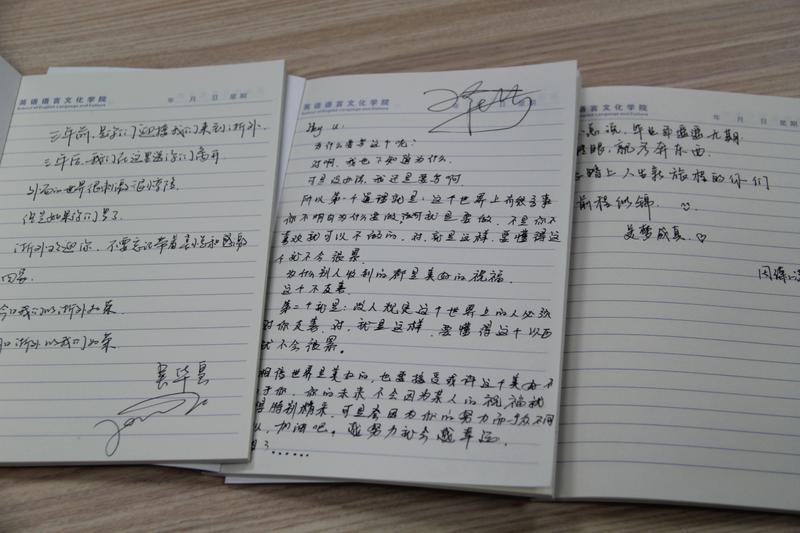 英语语言文化学院
School of English Language and Culture
年 月 日 星期
三年前，我们来到浙外
三年后，我们在这里送你们离开
外面的世界很刺激很惊险
但是如果你们累了
浙外欢迎你，不要忘记带着
回家
今日我们以浙外为荣
浙外以我们为荣
英语语言文化学院
School of English Language and Culture
期
Hey u:
为什么要写这个呢?
对啊，我也不知道为什么
可是没办法，我还是要写啊
所以第一个道理就是：这个世界上有很多事
你不明白为什么要做就是要做，不是你不
喜欢就可以不做的，对，就是这样，要懂得这
个就不会很累
为什么别人收到的都是美好的祝福，
这个不友善
第二个就是：没人规定这个世界上的人必须
对你友善，对，就是这样，要懂得这个以后
就不会很累。
相信世界是美好的，也要接受或许这个美好不
于你，你的未来不会因为某人的祝福就
特别精采，可是会因为你的努力而与众不同
加油吧。越努力就会越幸运。
......
英语语言文化学院
School of English Language and Culture
年 月 日 星期
，毕业
眼，就要各奔东西
踏上人生新旅程的你们
前程似锦 ♡
美梦成真 ♡